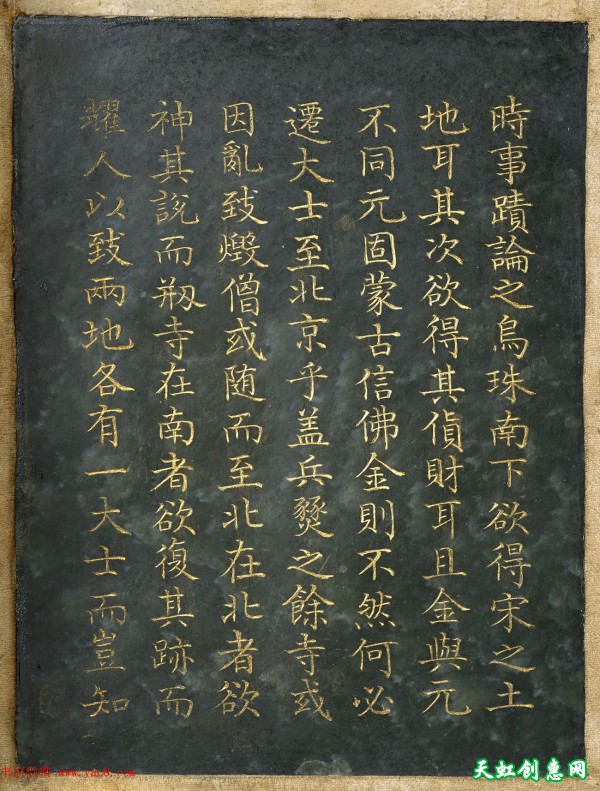 時事蹟論之烏珠南下欲得宋之土
地耳其次欲得其貨財耳且金與元
不同元固蒙古信佛金則不然何必
遷大士至北京乎盖兵燹之餘寺或
因亂致燬僧或随而至北在北者欲
神其説而剏寺在南者欲復其跡而
耀人以致兩地各有一大士而豈知
书法欣赏 www.yac8.com
天虹创惠网